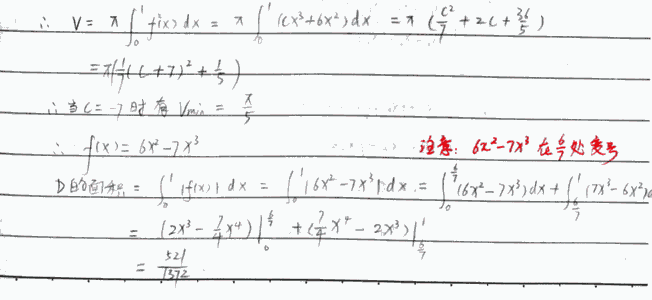 ∴ V = π∫₀¹ f²(x) dx = π∫₀¹ (cx³+6x²) dx = π(c²/7 + 2c + 36/5)
= π(1/7(c+7)² + 1/5)
∴ 当 c = -7 时 有 Vmin = π/5
∴ f(x) = 6x² - 7x³ 注意: 6x²-7x³ 在 6/7 处变号
D的面积 = ∫₀¹ |f(x)| dx = ∫₀¹ |6x²-7x³| dx = ∫₀^(6/7) (6x²-7x³)dx + ∫_(6/7)^1 (7x³-6x²)d
= (2x³ - 7/4x⁴)|₀^(6/7) + (7/4x⁴ - 2x³)|_(6/7)^1
= 521/1372